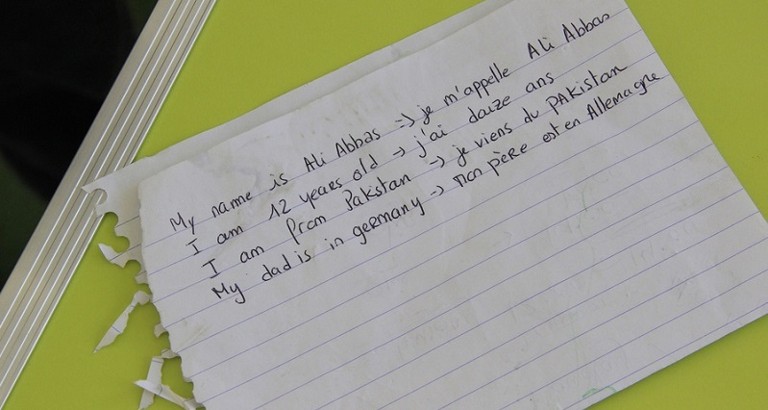 My name is Ali Abbas → je m'appelle Ali Abbas
I am 12 years old → j'ai douze ans
I am from Pakistan → je viens du PAKistan
My dad is in germany → mon père est en Allemagne